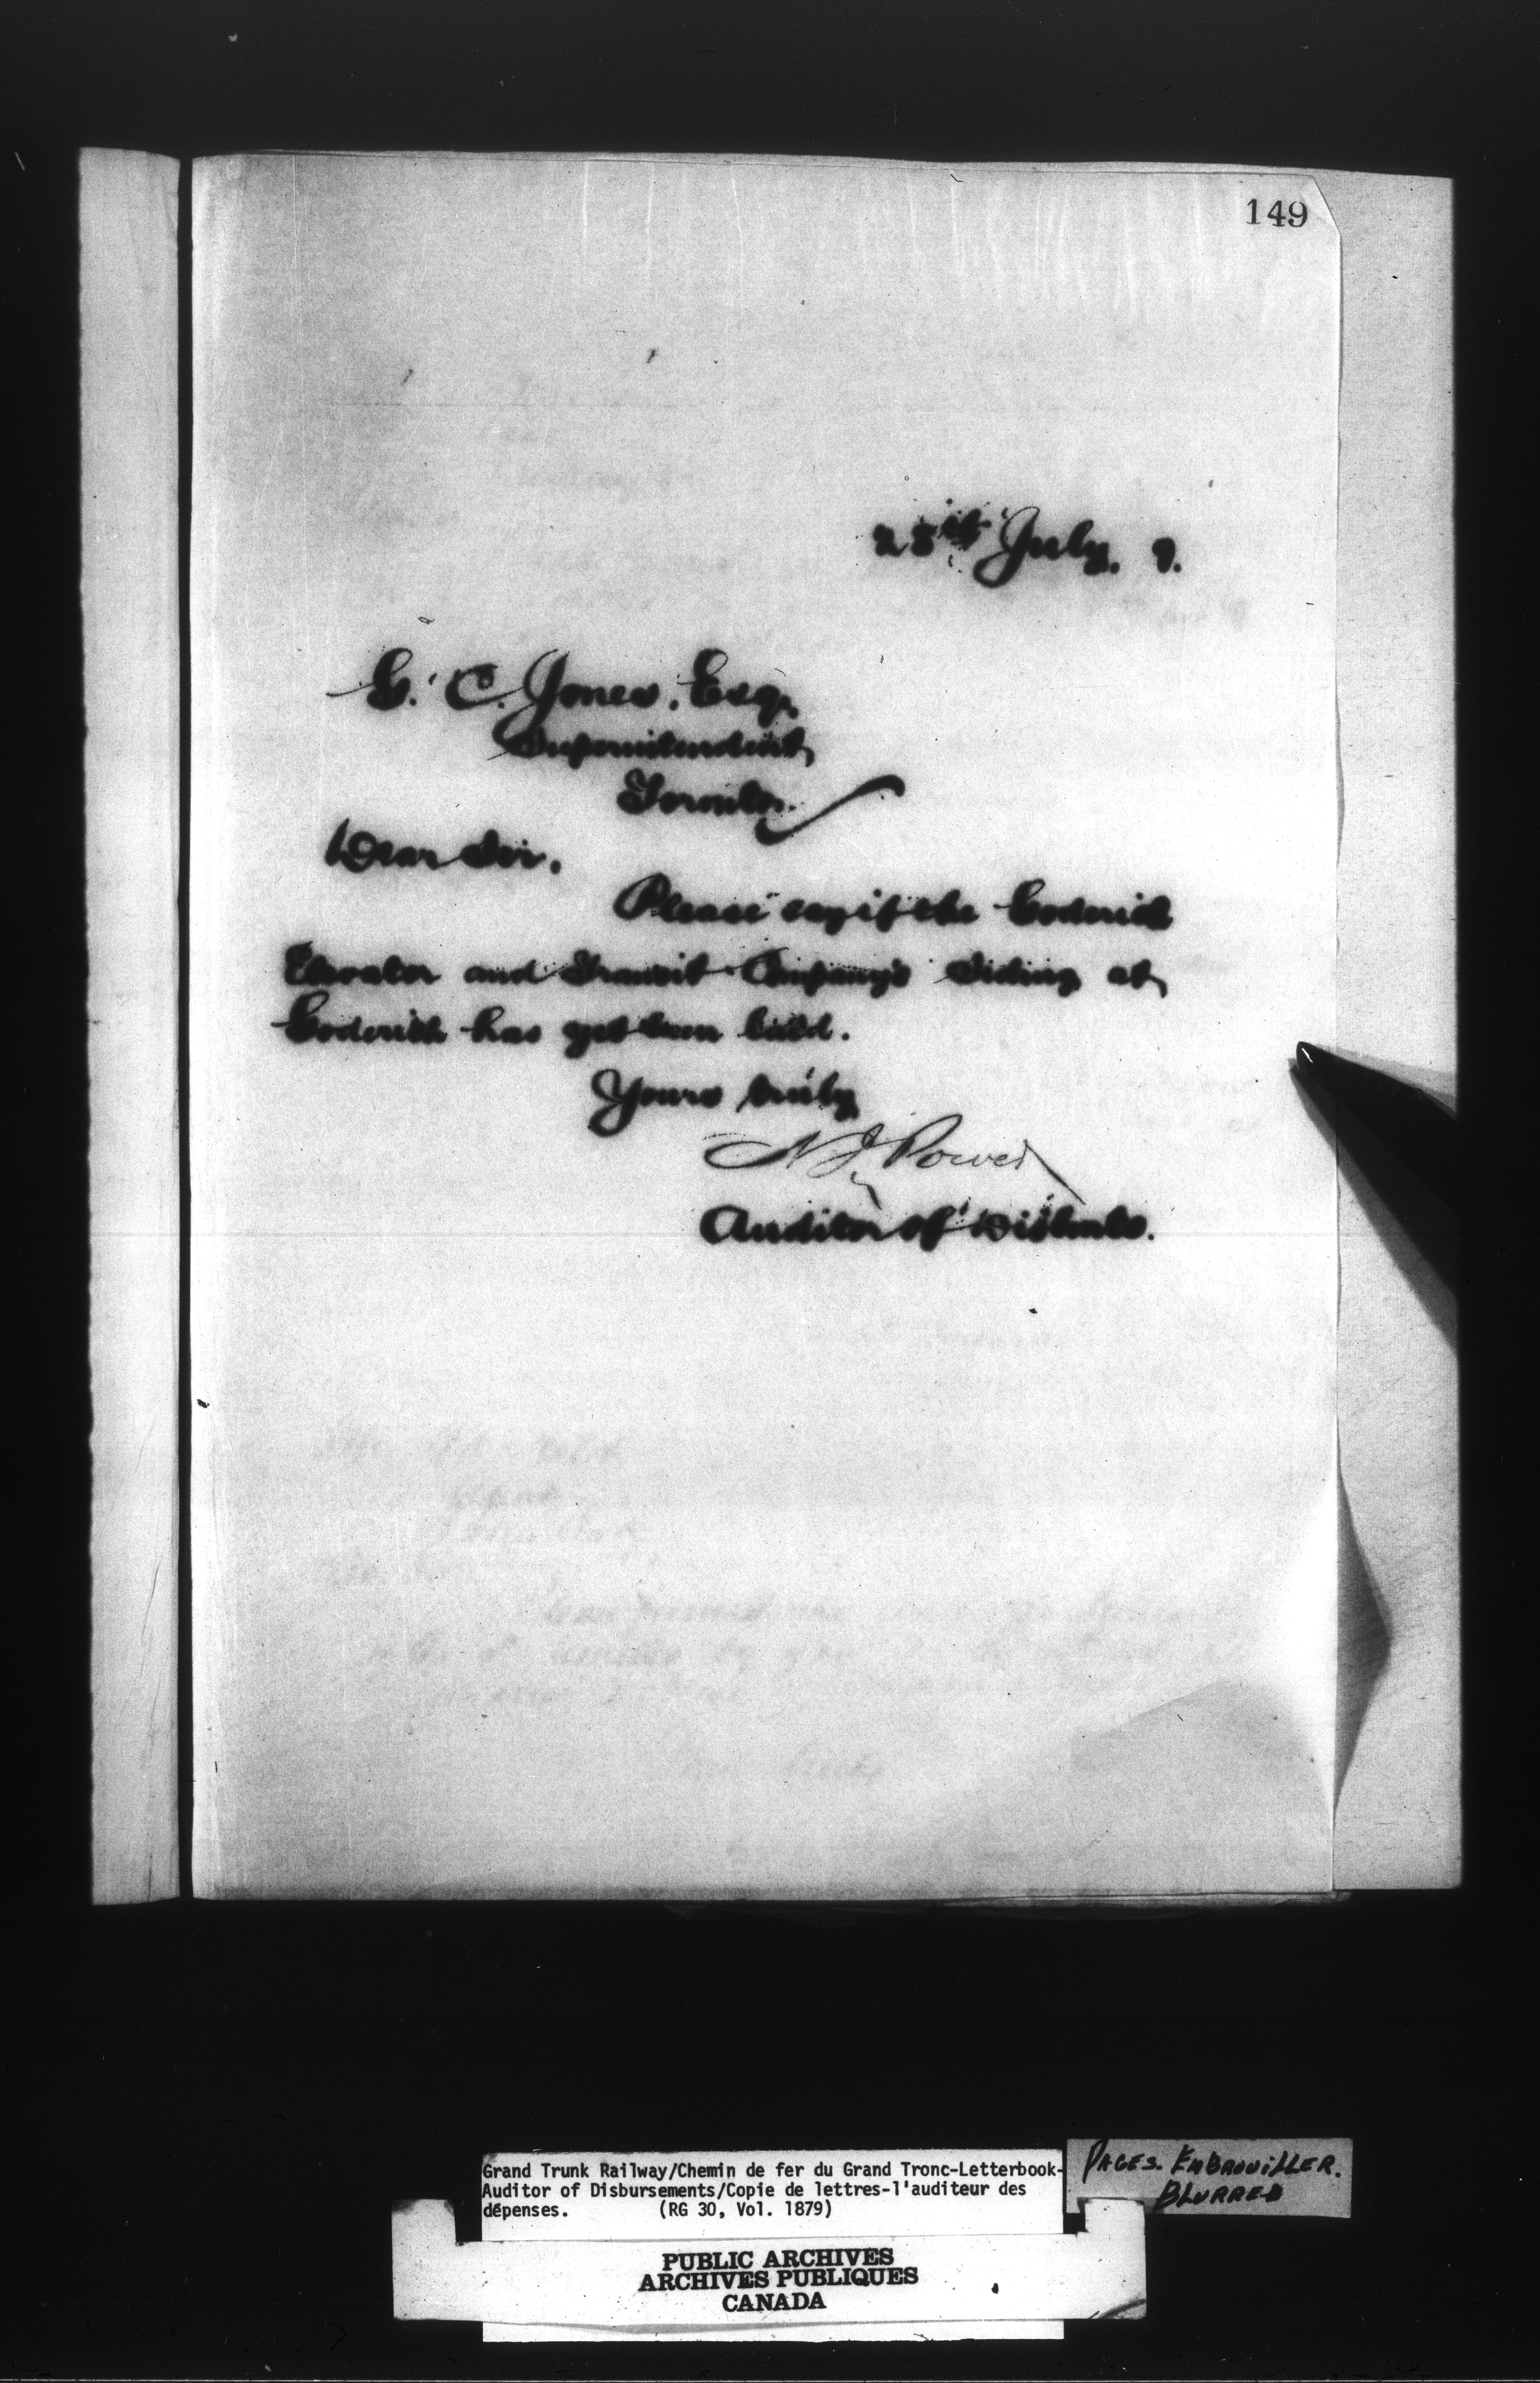 149
28th July. 9.
G. C. Jones, Esq.
Superintendent,
Toronto.
Dear Sir,
Please say if the Goderich
Elevator and Transit Company's Siding at
Goderich has yet been build.
Yours truly
N J Power
Auditor of Disbmts.
Grand Trunk Railway/Chemin de fer du Grand Tronc-Letterbook-
Auditor of Disbursements/Copie de lettres-l'auditeur des
dépenses. (RG 30, Vol. 1879)
PAGES. EMBROUILLER.
BLURRED
PUBLIC ARCHIVES
ARCHIVES PUBLIQUES
CANADA